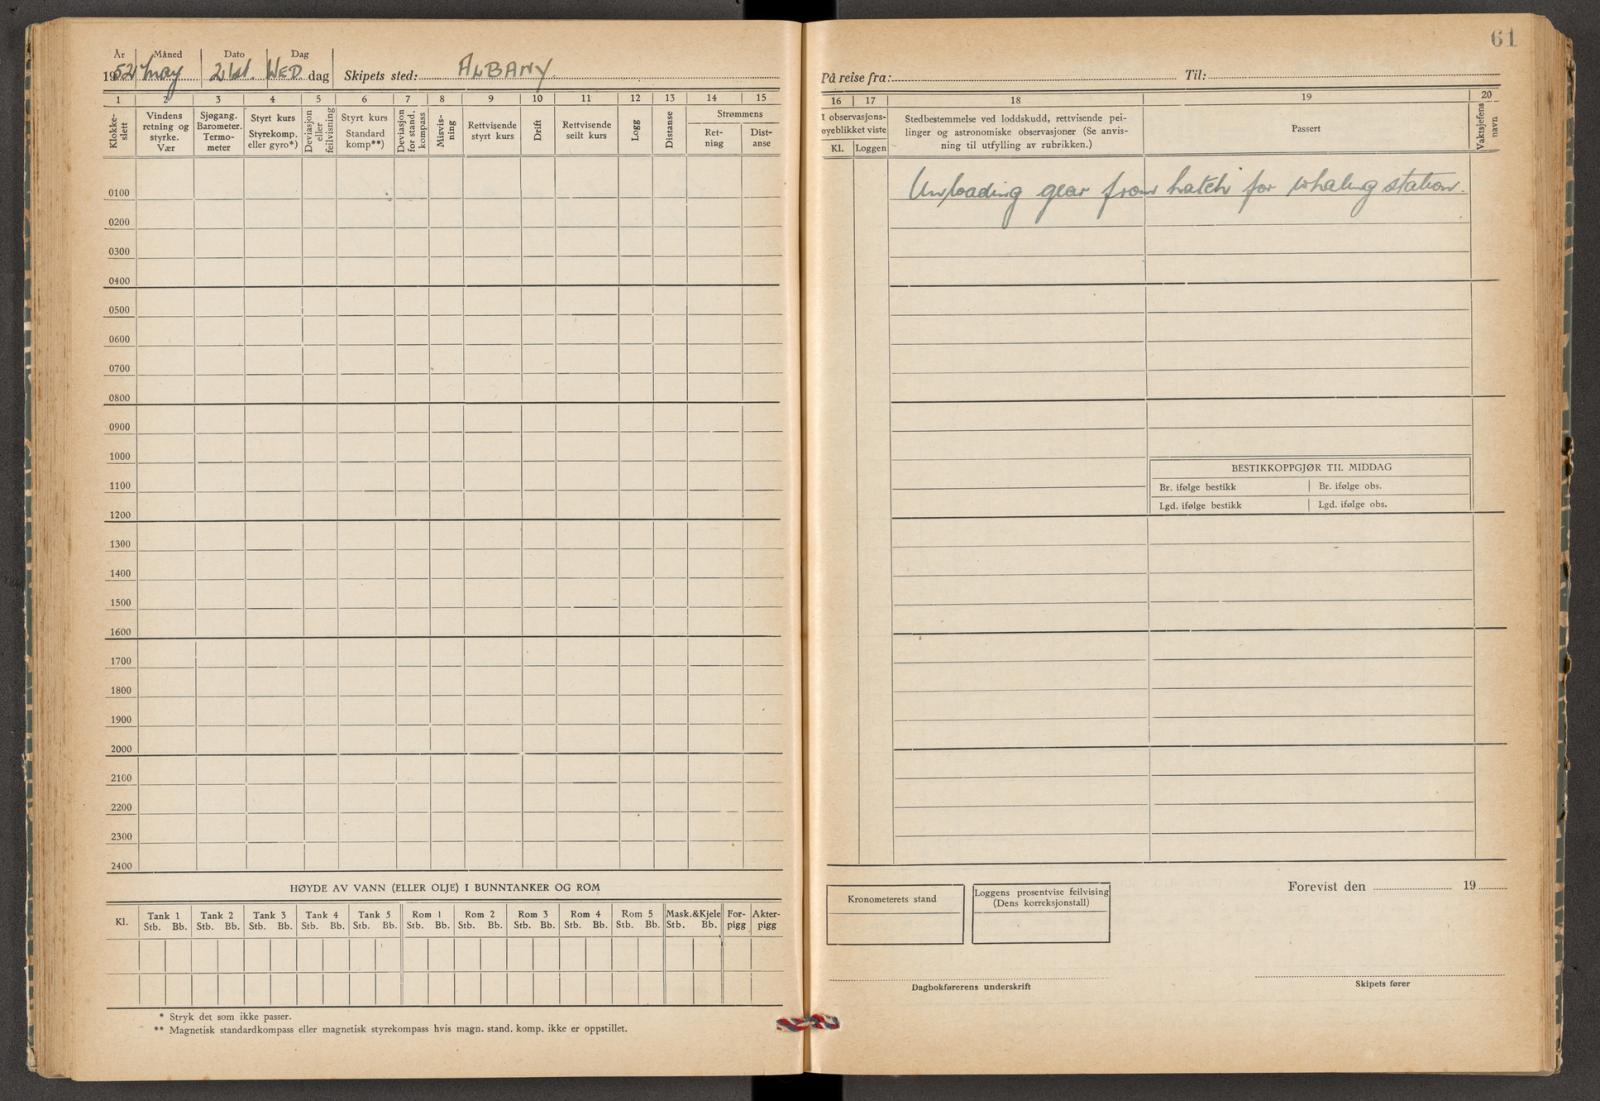 61
År Måned Dato Dag
1952 May 21st. WED. dag Skipets sted: ALBANY.
På reise fra: Til:
1 2 3 4 5 6 7 8 9 10 11 12 13 14 15
16 17 18 19 20
Klokke-slett
Vindens retning og styrke. Vær
Sjøgang. Barometer. Termo-meter
Styrt kurs Styrekomp. eller gyro*)
Deviasjon eller feilvisning
Styrt kurs Standard komp**)
Deviasjon for stand. kompass
Misvis-ning
Rettvisende styrt kurs
Drift
Rettvisende seilt kurs
Logg
Distanse
Strømmens
Ret-ning
Dist-anse
I observasjons-øyeblikket viste
Kl. Loggen
Stedbestemmelse ved loddskudd, rettvisende pei-
linger og astronomiske observasjoner (Se anvis-
ning til utfylling av rubrikken.)
Passert
Vaktsjefens navn
Unloading gear from hatch for whaling station.
0100
0200
0300
0400
0500
0600
0700
0800
0900
1000
1100
1200
1300
1400
1500
1600
1700
1800
1900
2000
2100
2200
2300
2400
BESTIKKOPPGJØR TIL MIDDAG
Br. ifølge bestikk Br. ifølge obs.
Lgd. ifølge bestikk Lgd. ifølge obs.
HØYDE AV VANN (ELLER OLJE) I BUNNTANKER OG ROM
Kl. Tank 1 Tank 2 Tank 3 Tank 4 Tank 5 Rom 1 Rom 2 Rom 3 Rom 4 Rom 5 Mask.&Kjele For-pigg Akter-pigg
Stb. Bb. Stb. Bb. Stb. Bb. Stb. Bb. Stb. Bb. Stb. Bb. Stb. Bb. Stb. Bb. Stb. Bb. Stb. Bb. Stb. Bb.
* Stryk det som ikke passer.
** Magnetisk standardkompass eller magnetisk styrekompass hvis magn. stand. komp. ikke er oppstillet.
Kronometerets stand
Loggens prosentvise feilvising
(Dens korreksjonstall)
Forevist den 19
Dagbokførerens underskrift
Skipets fører